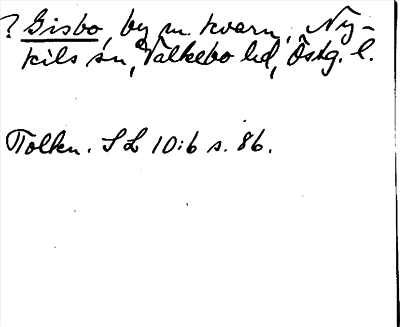 ? Gisbo, by m. kvarn, Ny-
kils sn, Valkebo hd, Östg. l.
Tolkn. SL 10:6 s. 86.